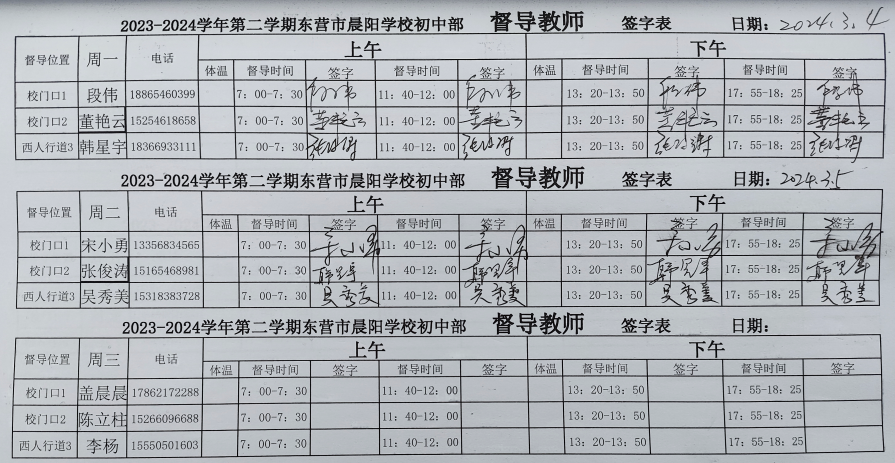 2023-2024学年第二学期东营市晨阳学校初中部 督导教师 签字表 日期：2024.3.4
督导位置 周一 电话 上午 下午
体温 督导时间 签字 督导时间 签字 体温 督导时间 签字 督导时间 签字
校门口1 段伟 18865460399 7：00-7：30 段伟 11：40-12：00 段伟 13：20-13：50 段伟 17：55-18：25 段伟
校门口2 董艳云 15254618658 7：00-7：30 董艳云 11：40-12：00 董艳云 13：20-13：50 董艳云 17：55-18：25 董艳云
西人行道3 韩星宇 18366933111 7：00-7：30 11：40-12：00 13：20-13：50 17：55-18：25
2023-2024学年第二学期东营市晨阳学校初中部 督导教师 签字表 日期：2024.3.5
督导位置 周二 电话 上午 下午
体温 督导时间 签字 督导时间 签字 体温 督导时间 签字 督导时间 签字
校门口1 宋小勇 13356834565 7：00-7：30 宋小勇 11：40-12：00 宋小勇 13：20-13：50 宋小勇 17：55-18：25 宋小勇
校门口2 张俊涛 15165468981 7：00-7：30 11：40-12：00 13：20-13：50 17：55-18：25
西人行道3 吴秀美 15318383728 7：00-7：30 吴秀美 11：40-12：00 吴秀美 13：20-13：50 吴秀美 17：55-18：25 吴秀美
2023-2024学年第二学期东营市晨阳学校初中部 督导教师 签字表 日期：
督导位置 周三 电话 上午 下午
体温 督导时间 签字 督导时间 签字 体温 督导时间 签字 督导时间 签字
校门口1 盖晨晨 17862172288 7：00-7：30 11：40-12：00 13：20-13：50 17：55-18：25
校门口2 陈立柱 15266096688 7：00-7：30 11：40-12：00 13：20-13：50 17：55-18：25
西人行道3 李杨 15550501603 7：00-7：30 11：40-12：00 13：20-13：50 17：55-18：25